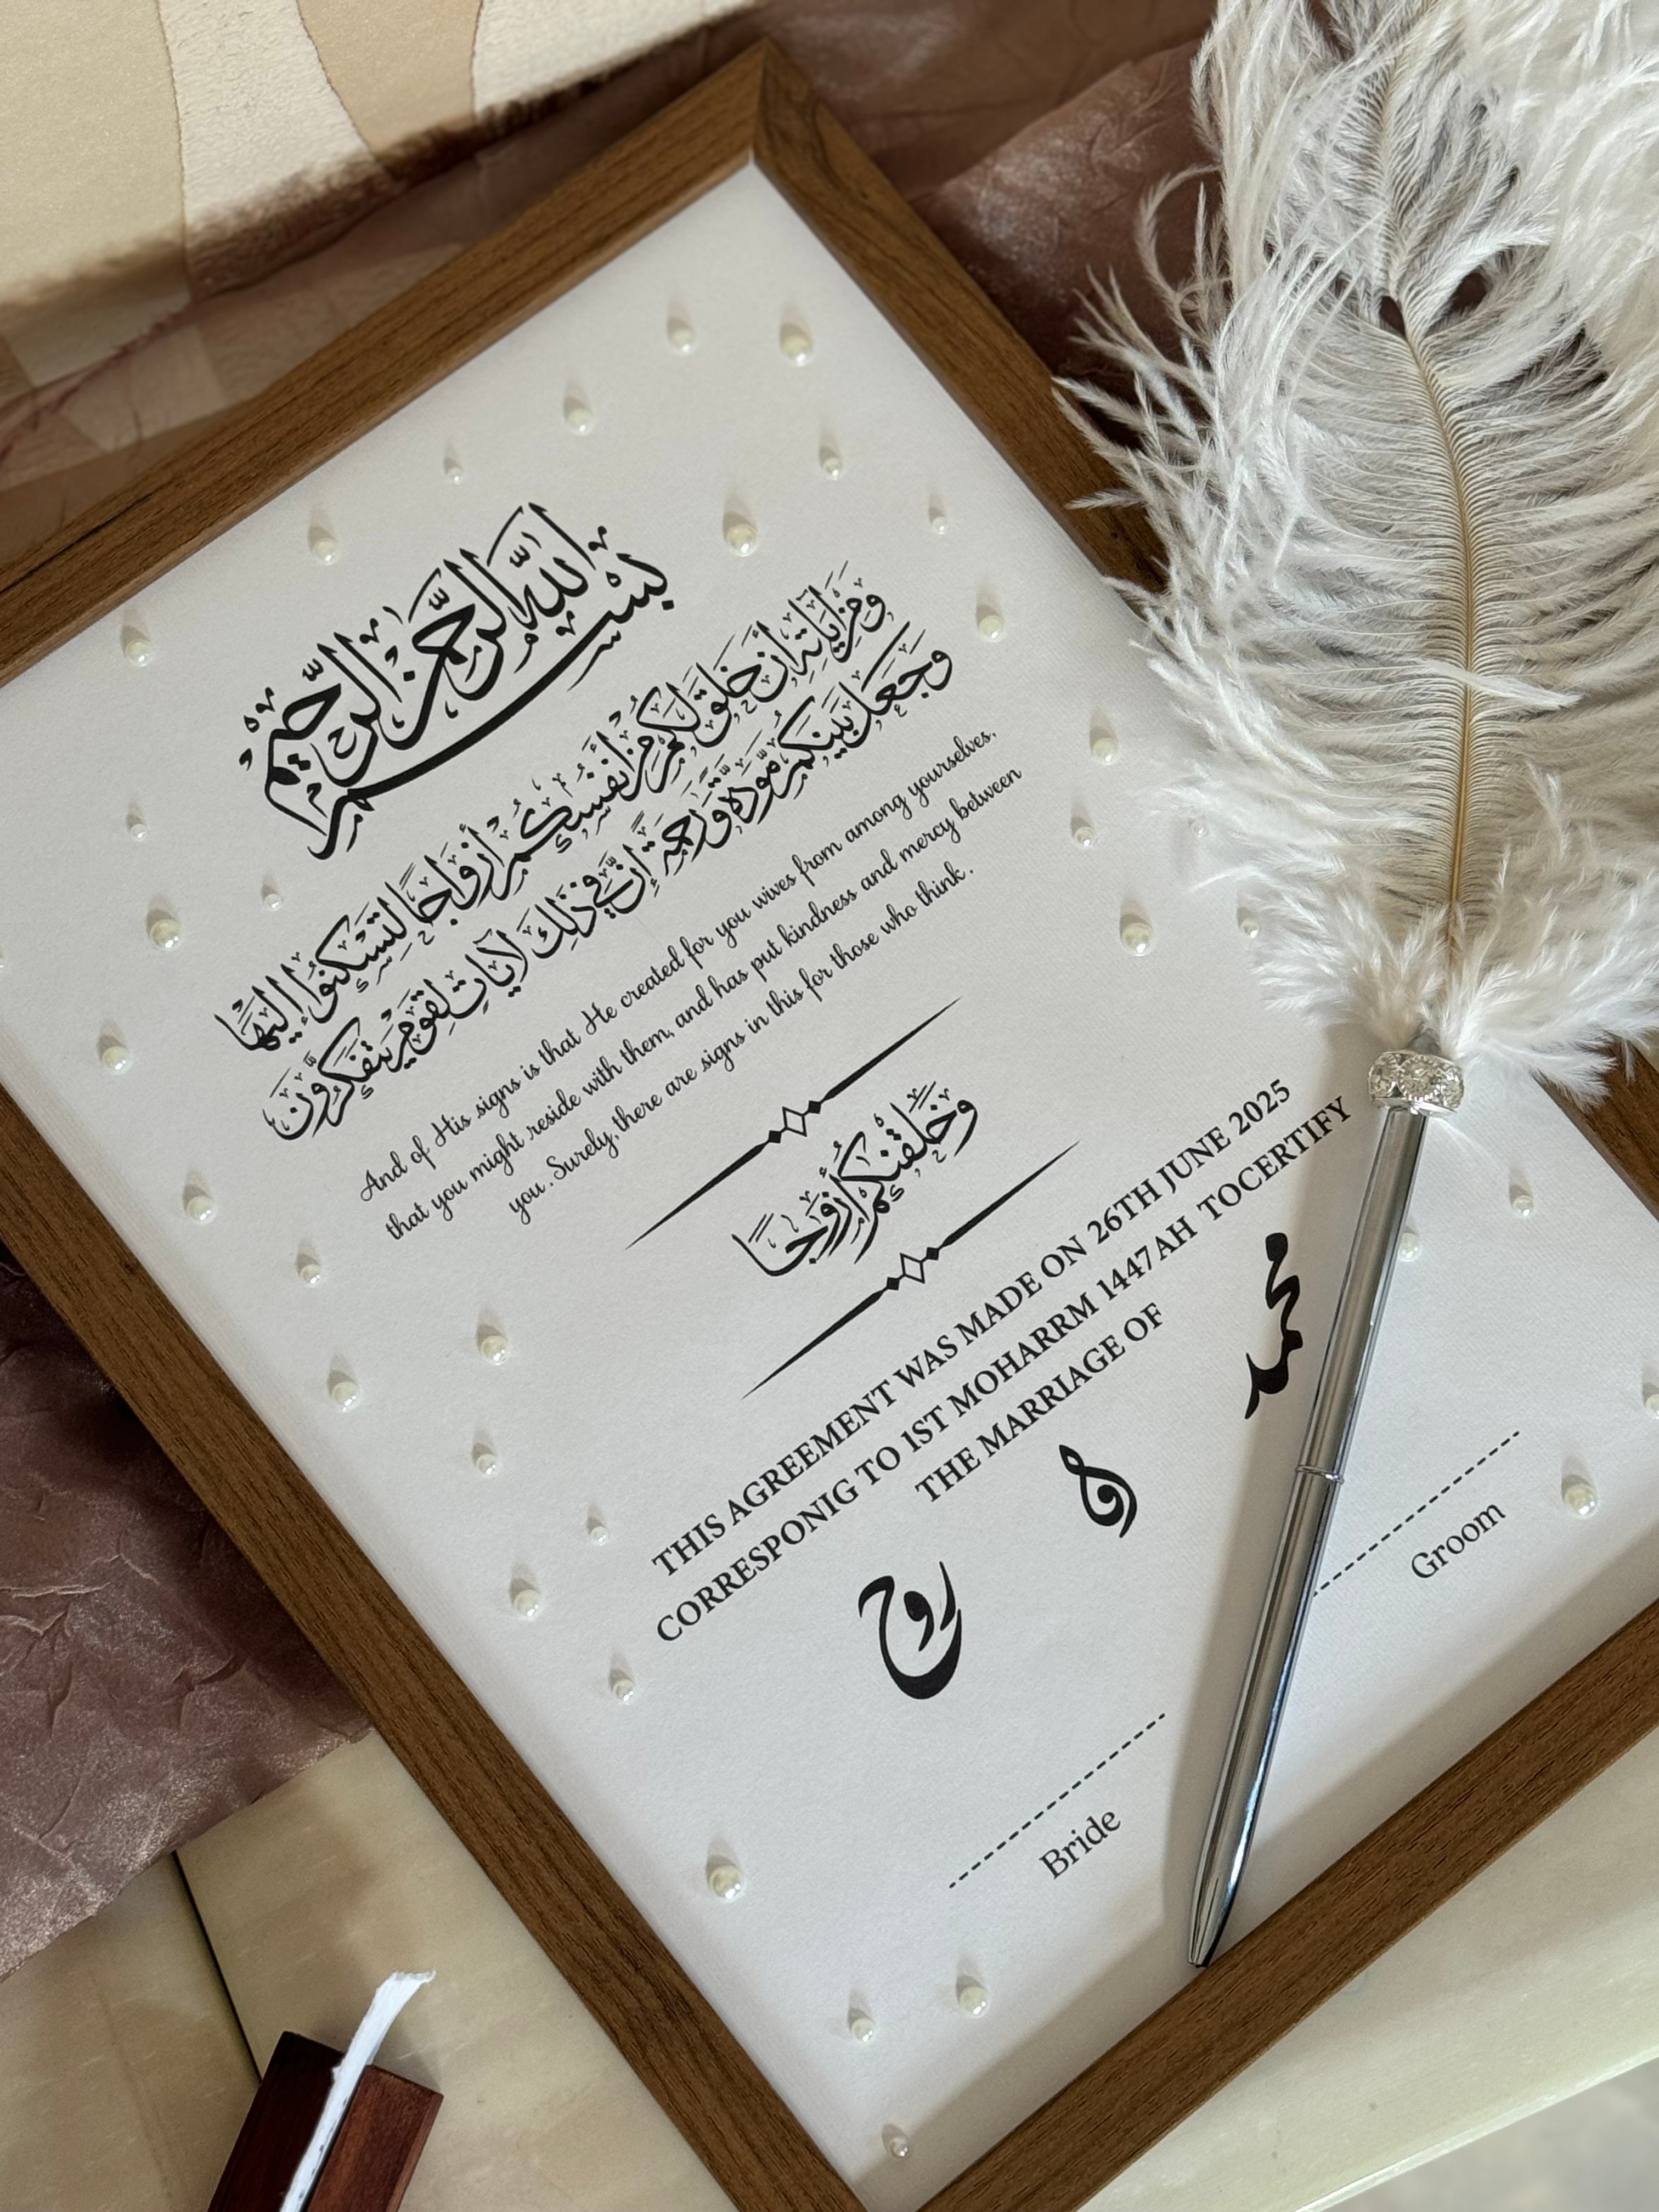 بسم الله الرحمن الرحيم
وَمِنْ آيَاتِهِ أَنْ خَلَقَ لَكُم مِّنْ أَنفُسِكُمْ أَزْوَاجًا لِّتَسْكُنُوا إِلَيْهَا
وَجَعَلَ بَيْنَكُم مَّوَدَّةً وَرَحْمَةً إِنَّ فِي ذَٰلِكَ لَآيَاتٍ لِّقَوْمٍ يَتَفَكَّرُونَ
And of His signs is that He created for you wives from among yourselves,
that you might reside with them, and has put kindness and mercy between
you. Surely, there are signs in this for those who think.
وَخَلَقْنَكُمْ أَزْوَجًا
THIS AGREEMENT WAS MADE ON 26TH JUNE 2025
CORRESPONIG TO 1ST MOHARRM 1447AH TOCERTIFY
THE MARRIAGE OF
محمد
و
روح
Groom
Bride